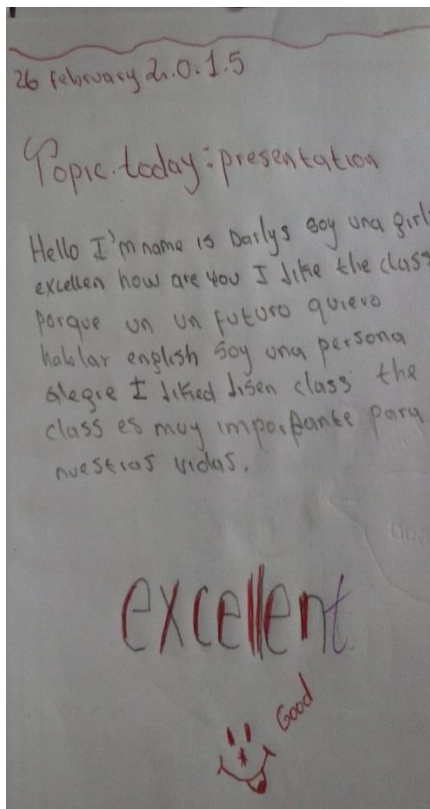 26 february 2.0.1.5
Topic.today: presentation
Hello I'm name is Darlys soy una girl
excellen how are you I like the class
porque un un futuro quiero
hablar english soy una persona
alegre I liked lisen class the
class es muy importante para
nuestras vidas.
excellent
Good